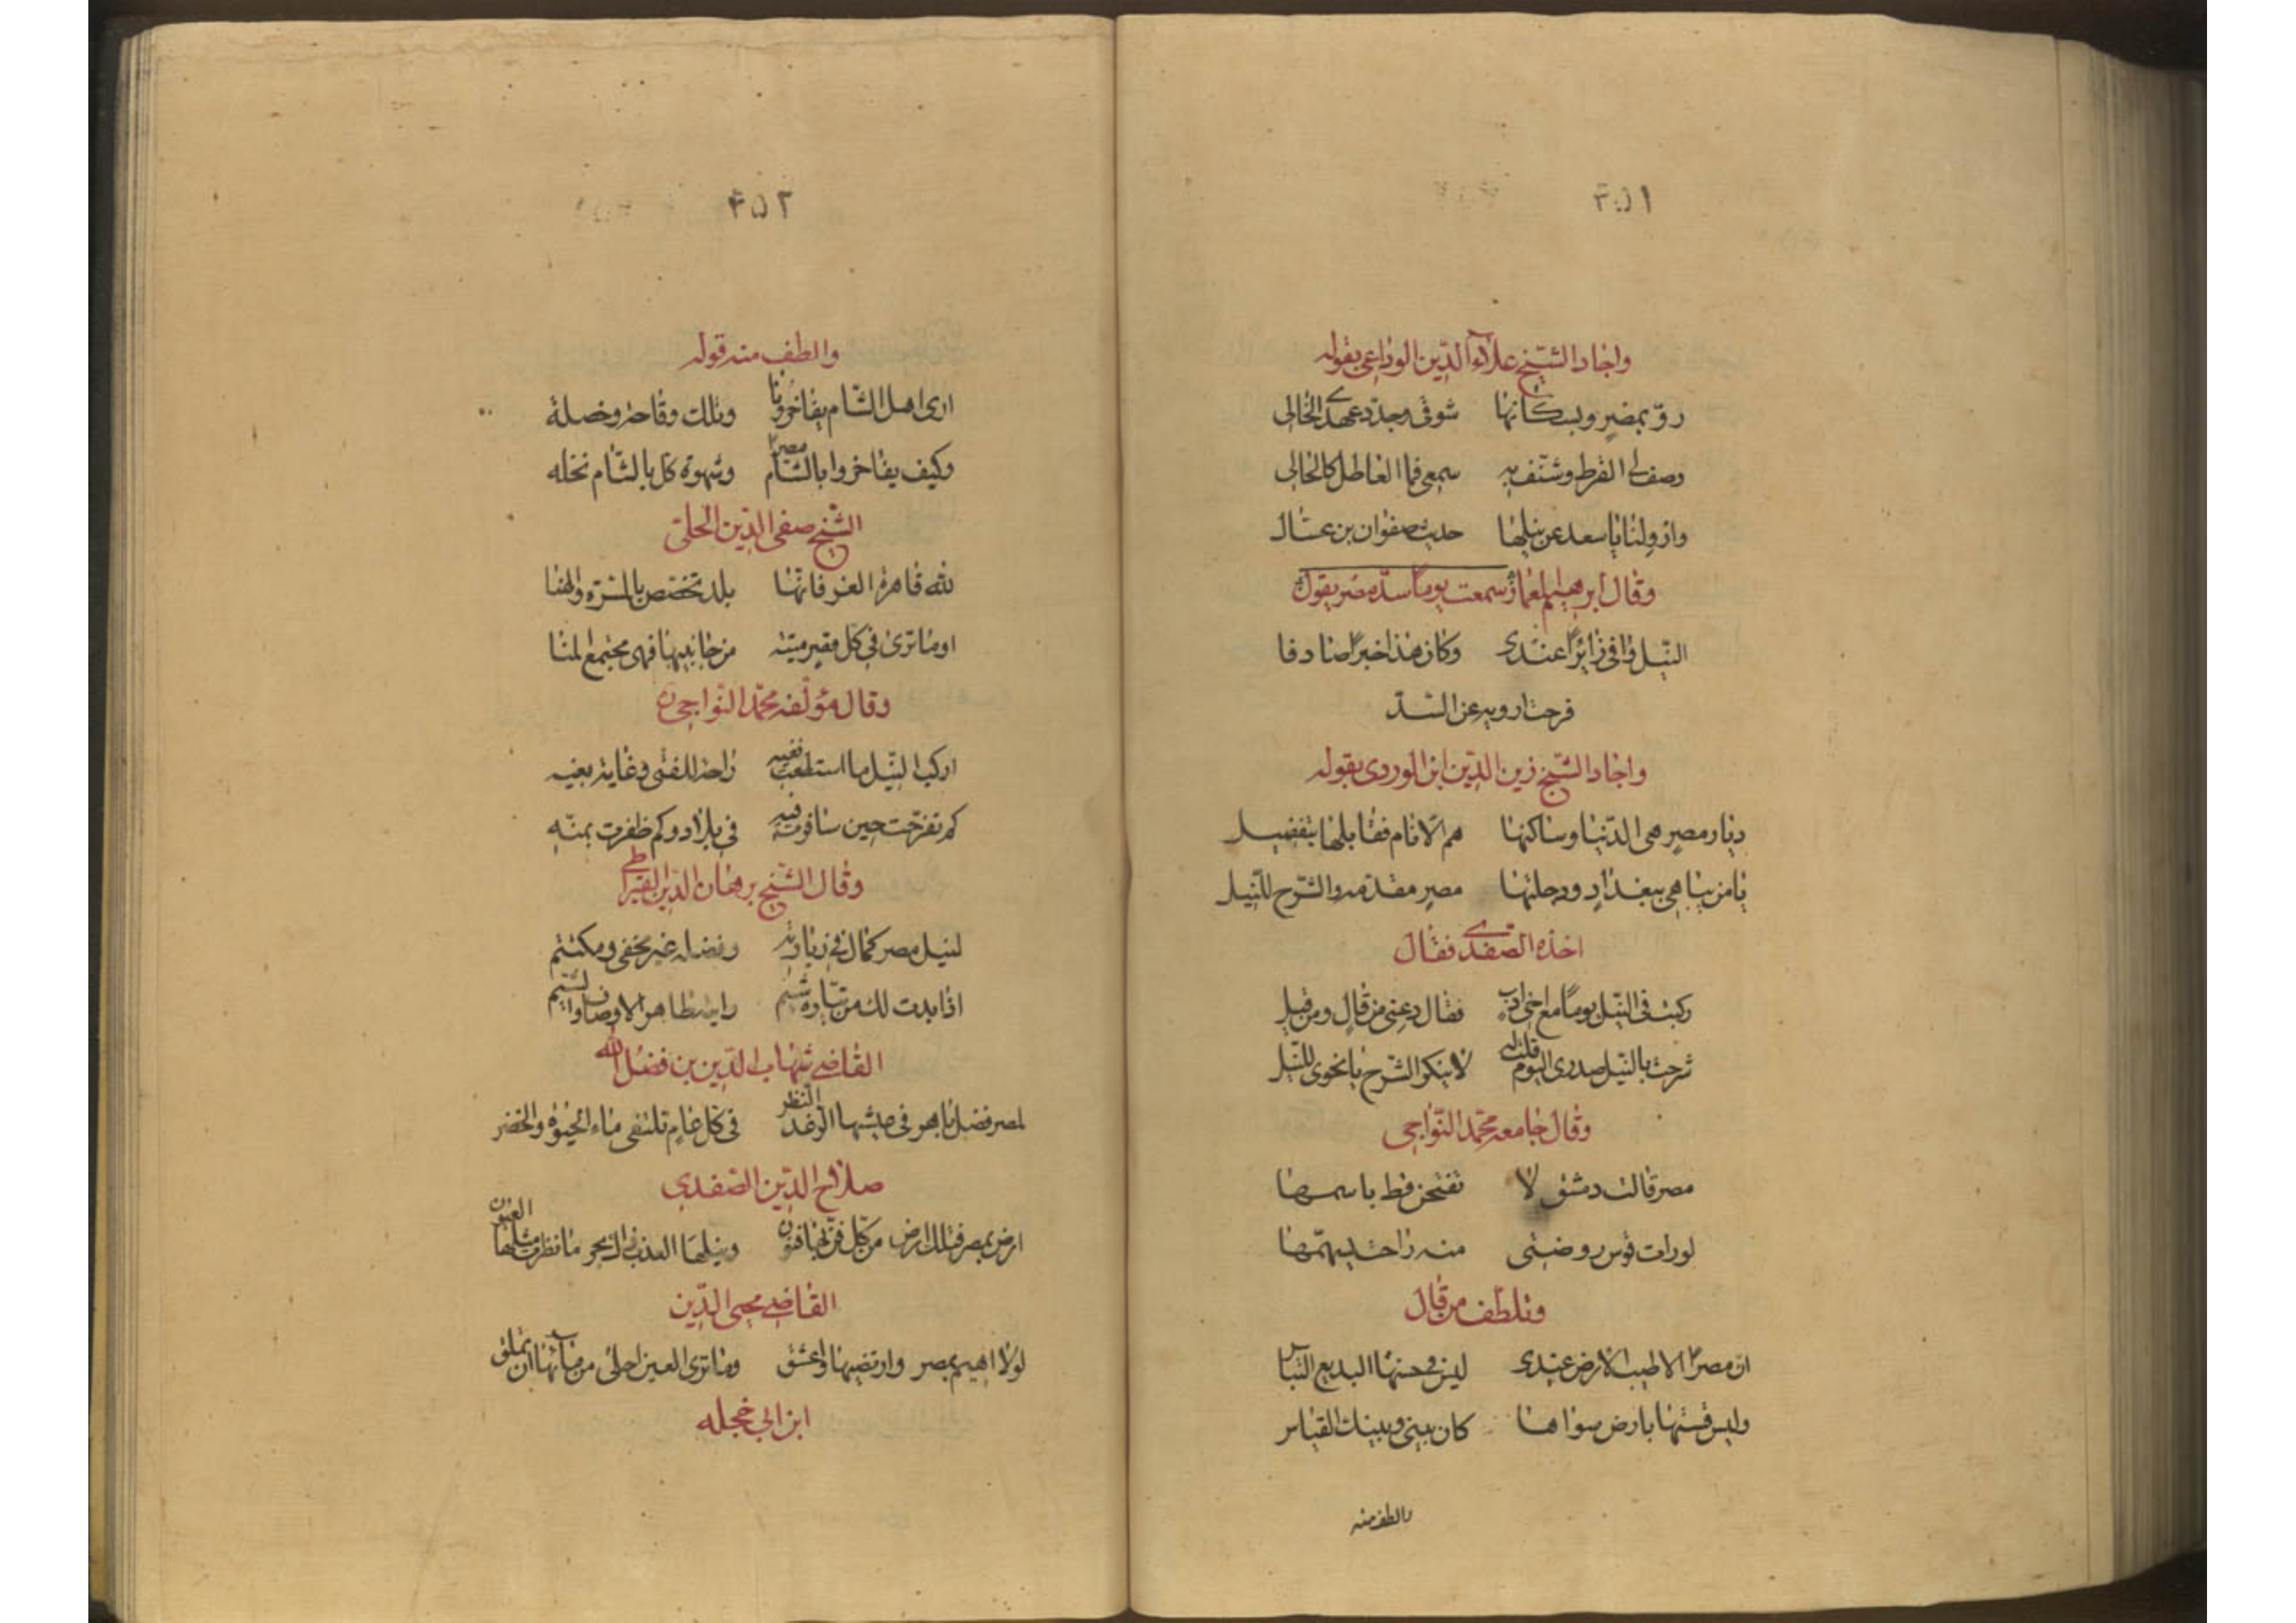 ٤٥١
واجاد الشيخ علاء الدين الوداعي بقوله
روّ بمصر وبسكانها شوقي وجدد عهدي الخالي
وصف لي القرط وشنف به سمعي فما العاطل كالحالي
وارو لنا يا سعد عن نيلها حديث صفوان بن عسال
وقال ابرهيم المعمار سمعت يوماً سدّ مصر يقول
النيل وافى زائراً عندي وكان هذا خبراً صادقا
فرحت ارويه عن السدّ
واجاد الشيخ زين الدين ابن الوردي بقوله
ديار مصر هي الدنيا وساكنها هم الانام فقابلها بتفضيل
يا من يباهي ببغداد ودجلتها مصر مقدمة والشرح للنيل
اخذه الصفدي فقال
ركبت في النيل يوماً مع اخي ادب فقال دعني من قال ومن قيل
شرحت بالنيل صدري اليوم قلت له لا ينكر الشرح يا نحوي للنيل
وقال جامعه محمد النواجي
مصر قالت دمشق لا تفتخر قط باسمها
لو رات قوس روضتي منه راحت بسهمها
وتلطف من قال
ان مصرا لاطيب الارض عندي ليس في حسنها البديع التباس
ولئن قستها بارض سواها كان بيني وبينك القياس
والطف منه
٤٥٢
والطف منه قوله
ارى اهل الشام يفاخرونا وتلك وقاحة وخصلة
وكيف يفاخروا بالشام مصرا وشهوة كل بالشام نخله
الشيخ صفي الدين الحلي
لله قاهرة المعز فانها بلد تختص بالمسرة والهنا
او ما ترى في كل قصر منية من جانبيها فهي مجتمع المنا
وقال مؤلفه محمد النواجي
اركب النيل ما استطعت ففيه راحة للفتى وغاية بغيه
كم تفرجت حين سافرت فيه في بلاد وكم ظفرت بمنيه
وقال الشيخ برهان الدين القيراطي
لنيل مصر كمال في زيادته وفضله غير مخفي ومكتتم
اذا بدت لك من تياره شيم رايت طاهر الاوصاف والشيم
القاضي شهاب الدين بن فضل الله
لمصر فضل باهر في عيشها الرغد النظر في كل عام تلتقي ماء الحيوة والخضر
صلاح الدين الصفدي
ارض بمصر فتلك ارض من كل فن بها فنون ونيلها العذب ذاك بحر ما نظرت مثلها العيون
القاضي محيى الدين
لولا اهيم بمصر وارتضيها واعشق وما ترى العين احلى من مآئها ان تملق
ابن ابي حجله